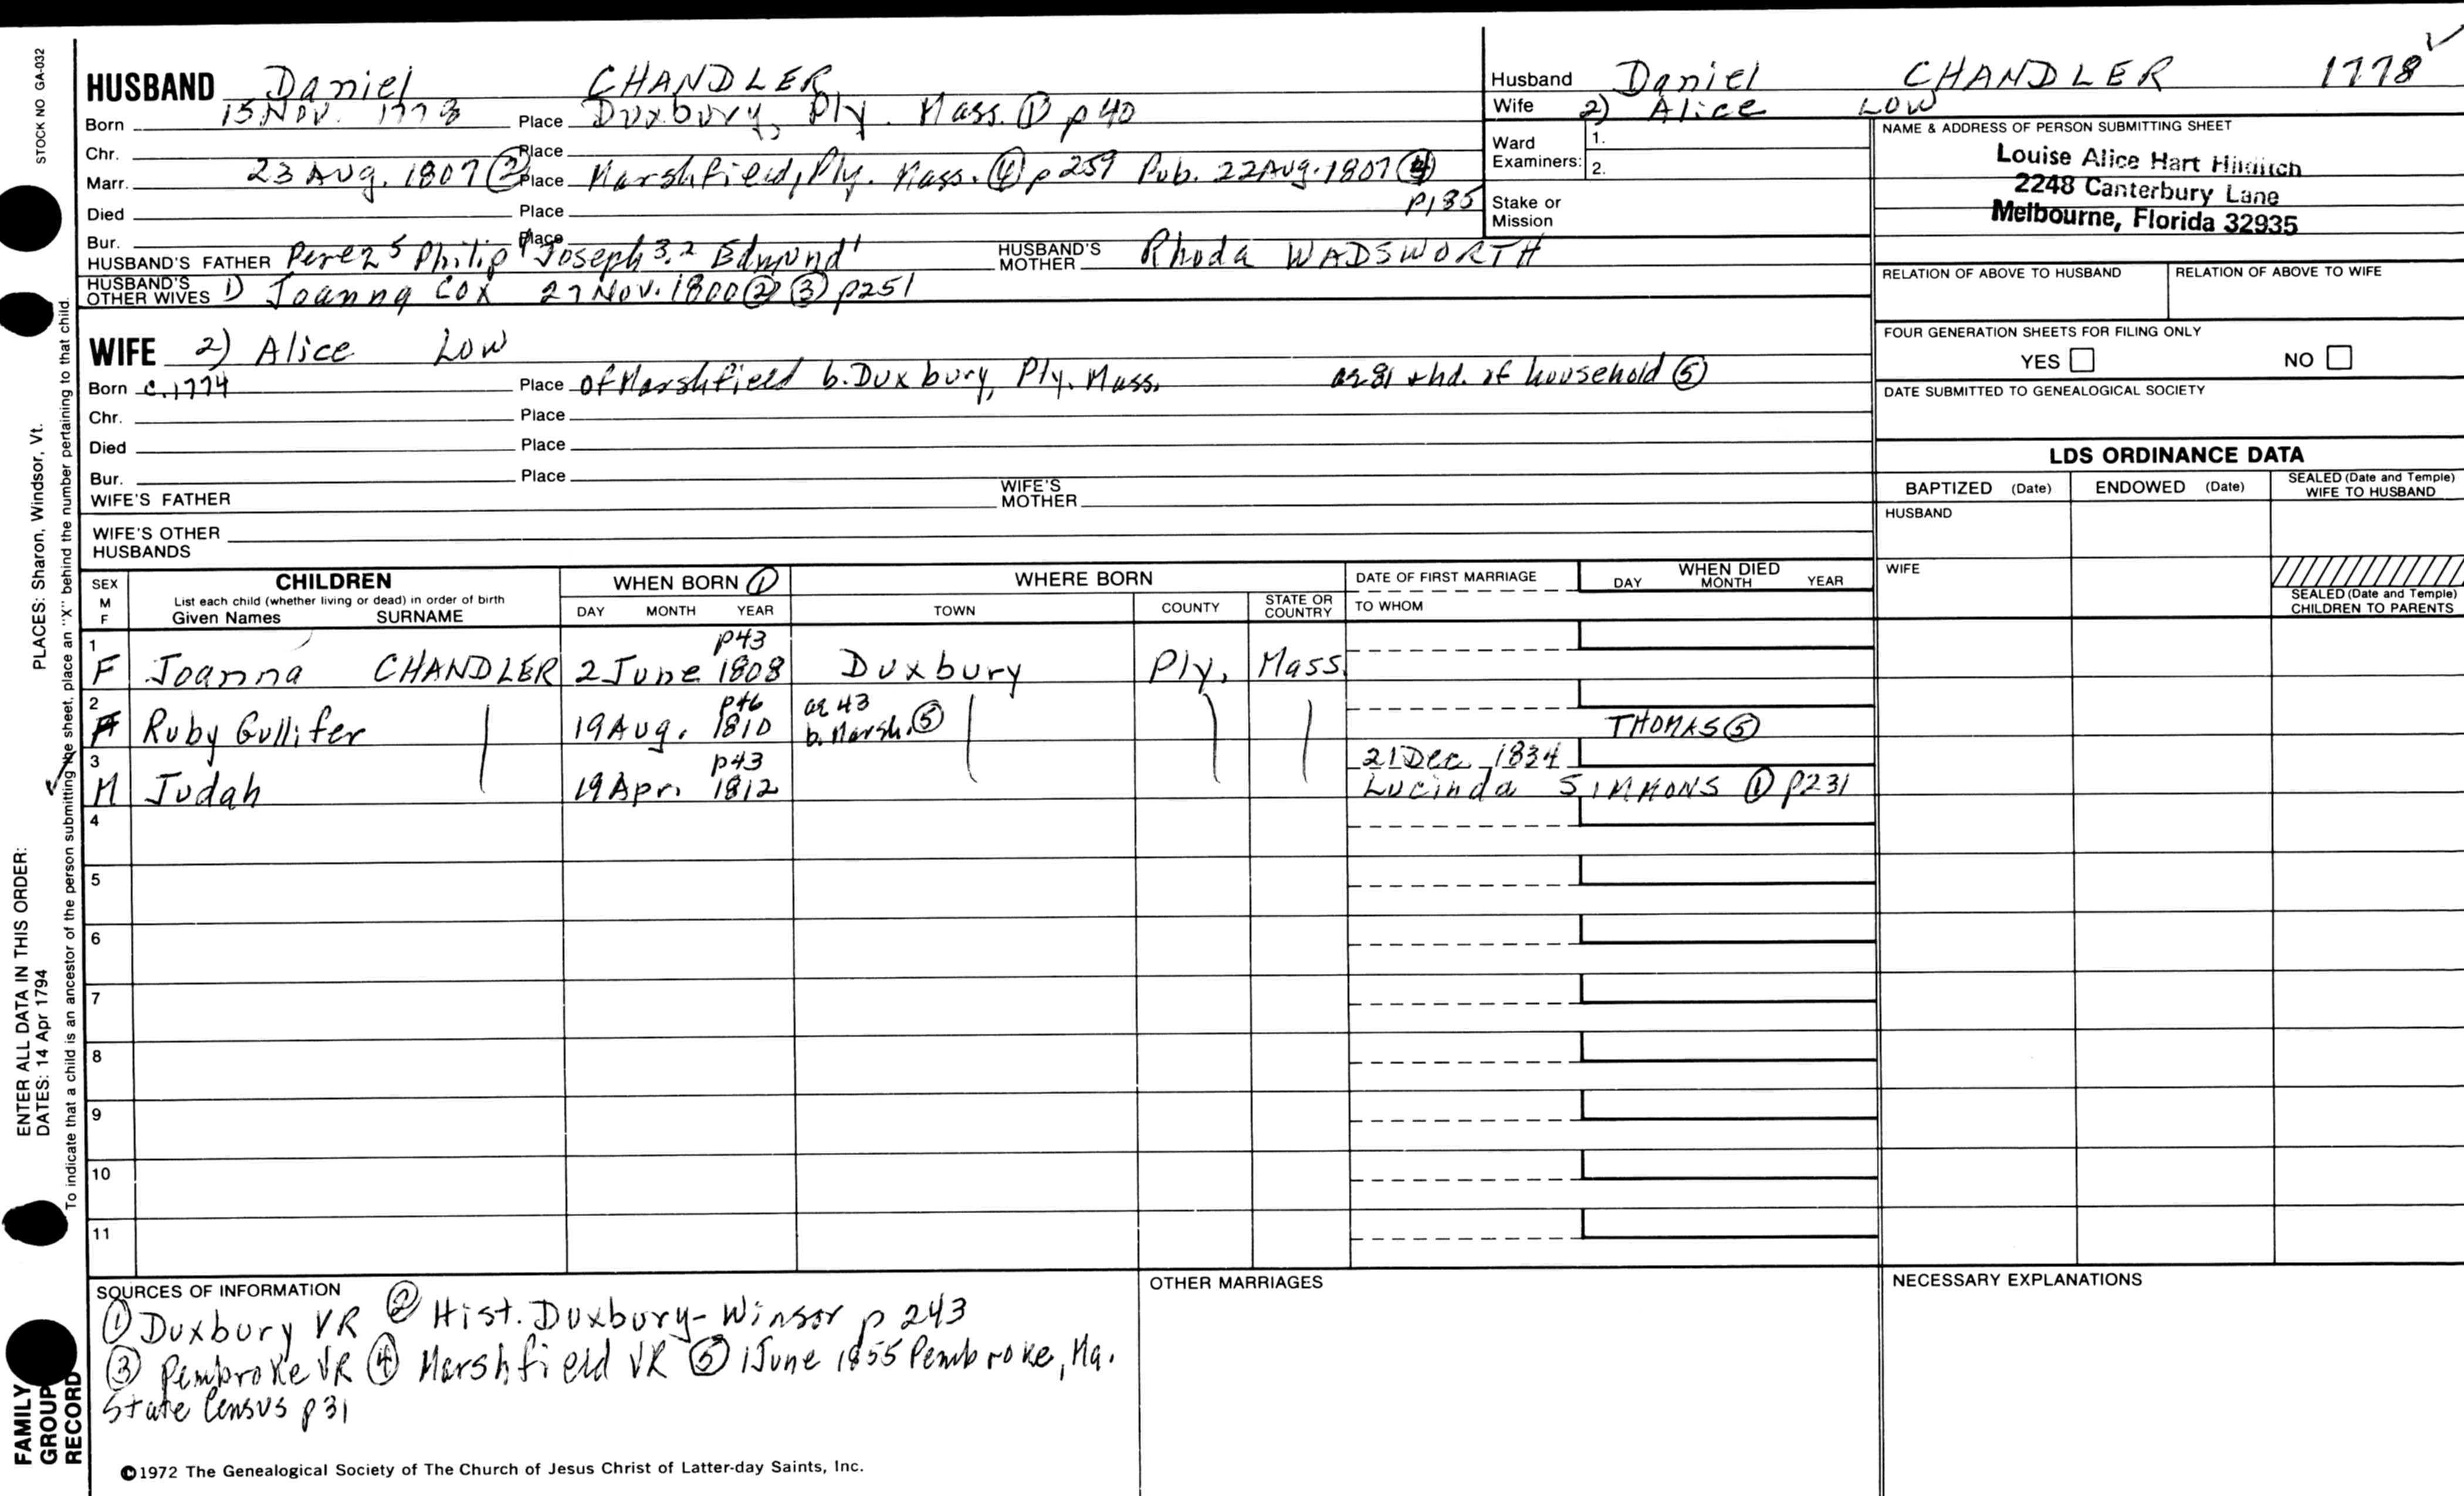 HUSBAND Daniel CHANDLER
Born 15 Nov. 1778 Place Duxbury, Ply. Mass. ① p 40
Chr. Place
Marr. 23 Aug. 1807 ② Place Marshfield, Ply. Mass. ④ p 259 Pub. 22 Aug. 1807 ④
p185
Died Place
Bur. Place
HUSBAND'S FATHER Perez 5 Philip 4 Joseph 3,2 Edmund 1 HUSBAND'S MOTHER Rhoda WADSWORTH
HUSBAND'S OTHER WIVES 1) Joanna COX 27 Nov. 1800 ② ③ p251
WIFE 2) Alice LOW
Born c.1774 Place of Marshfield b. Duxbury, Ply. Mass. ae 81 + hd. of household ⑤
Chr. Place
Died Place
Bur. Place
WIFE'S FATHER WIFE'S MOTHER
WIFE'S OTHER HUSBANDS
Husband Daniel CHANDLER 1778 ✓
Wife 2) Alice LOW
Ward Examiners: 1.
2.
Stake or Mission
NAME & ADDRESS OF PERSON SUBMITTING SHEET
Louise Alice Hart Hilditch
2248 Canterbury Lane
Melbourne, Florida 32935
RELATION OF ABOVE TO HUSBAND RELATION OF ABOVE TO WIFE
FOUR GENERATION SHEETS FOR FILING ONLY
YES NO
DATE SUBMITTED TO GENEALOGICAL SOCIETY
LDS ORDINANCE DATA
BAPTIZED (Date) ENDOWED (Date) SEALED (Date and Temple) WIFE TO HUSBAND
HUSBAND
WIFE
SEALED (Date and Temple) CHILDREN TO PARENTS
SEX M F CHILDREN WHEN BORN ① WHERE BORN DATE OF FIRST MARRIAGE WHEN DIED
List each child (whether living or dead) in order of birth
Given Names SURNAME DAY MONTH YEAR TOWN COUNTY STATE OR COUNTRY TO WHOM DAY MONTH YEAR
p43
1 F Joanna CHANDLER 2 June 1808 Duxbury Ply. Mass.
p46 ae 43
2 F Ruby Gullifer 19 Aug. 1810 b. Marsh. ⑤ THOMAS ⑤
3 p43 21 Dec. 1834
✓ M Judah 19 Apr. 1812 Lucinda SIMMONS ① p231
4
5
6
7
8
9
10
11
SOURCES OF INFORMATION
① Duxbury VR ② Hist. Duxbury-Winsor p 243
③ Pembroke VR ④ Marshfield VR ⑤ 1 June 1855 Pembroke, Ma.
State Census p 31
OTHER MARRIAGES
NECESSARY EXPLANATIONS
©1972 The Genealogical Society of The Church of Jesus Christ of Latter-day Saints, Inc.
STOCK NO GA-032
PLACES: Sharon, Windsor, Vt.
ENTER ALL DATA IN THIS ORDER:
DATES: 14 Apr 1794
To indicate that a child is an ancestor of the person submitting the sheet, place an "X" behind the number pertaining to that child.
FAMILY
GROUP
RECORD